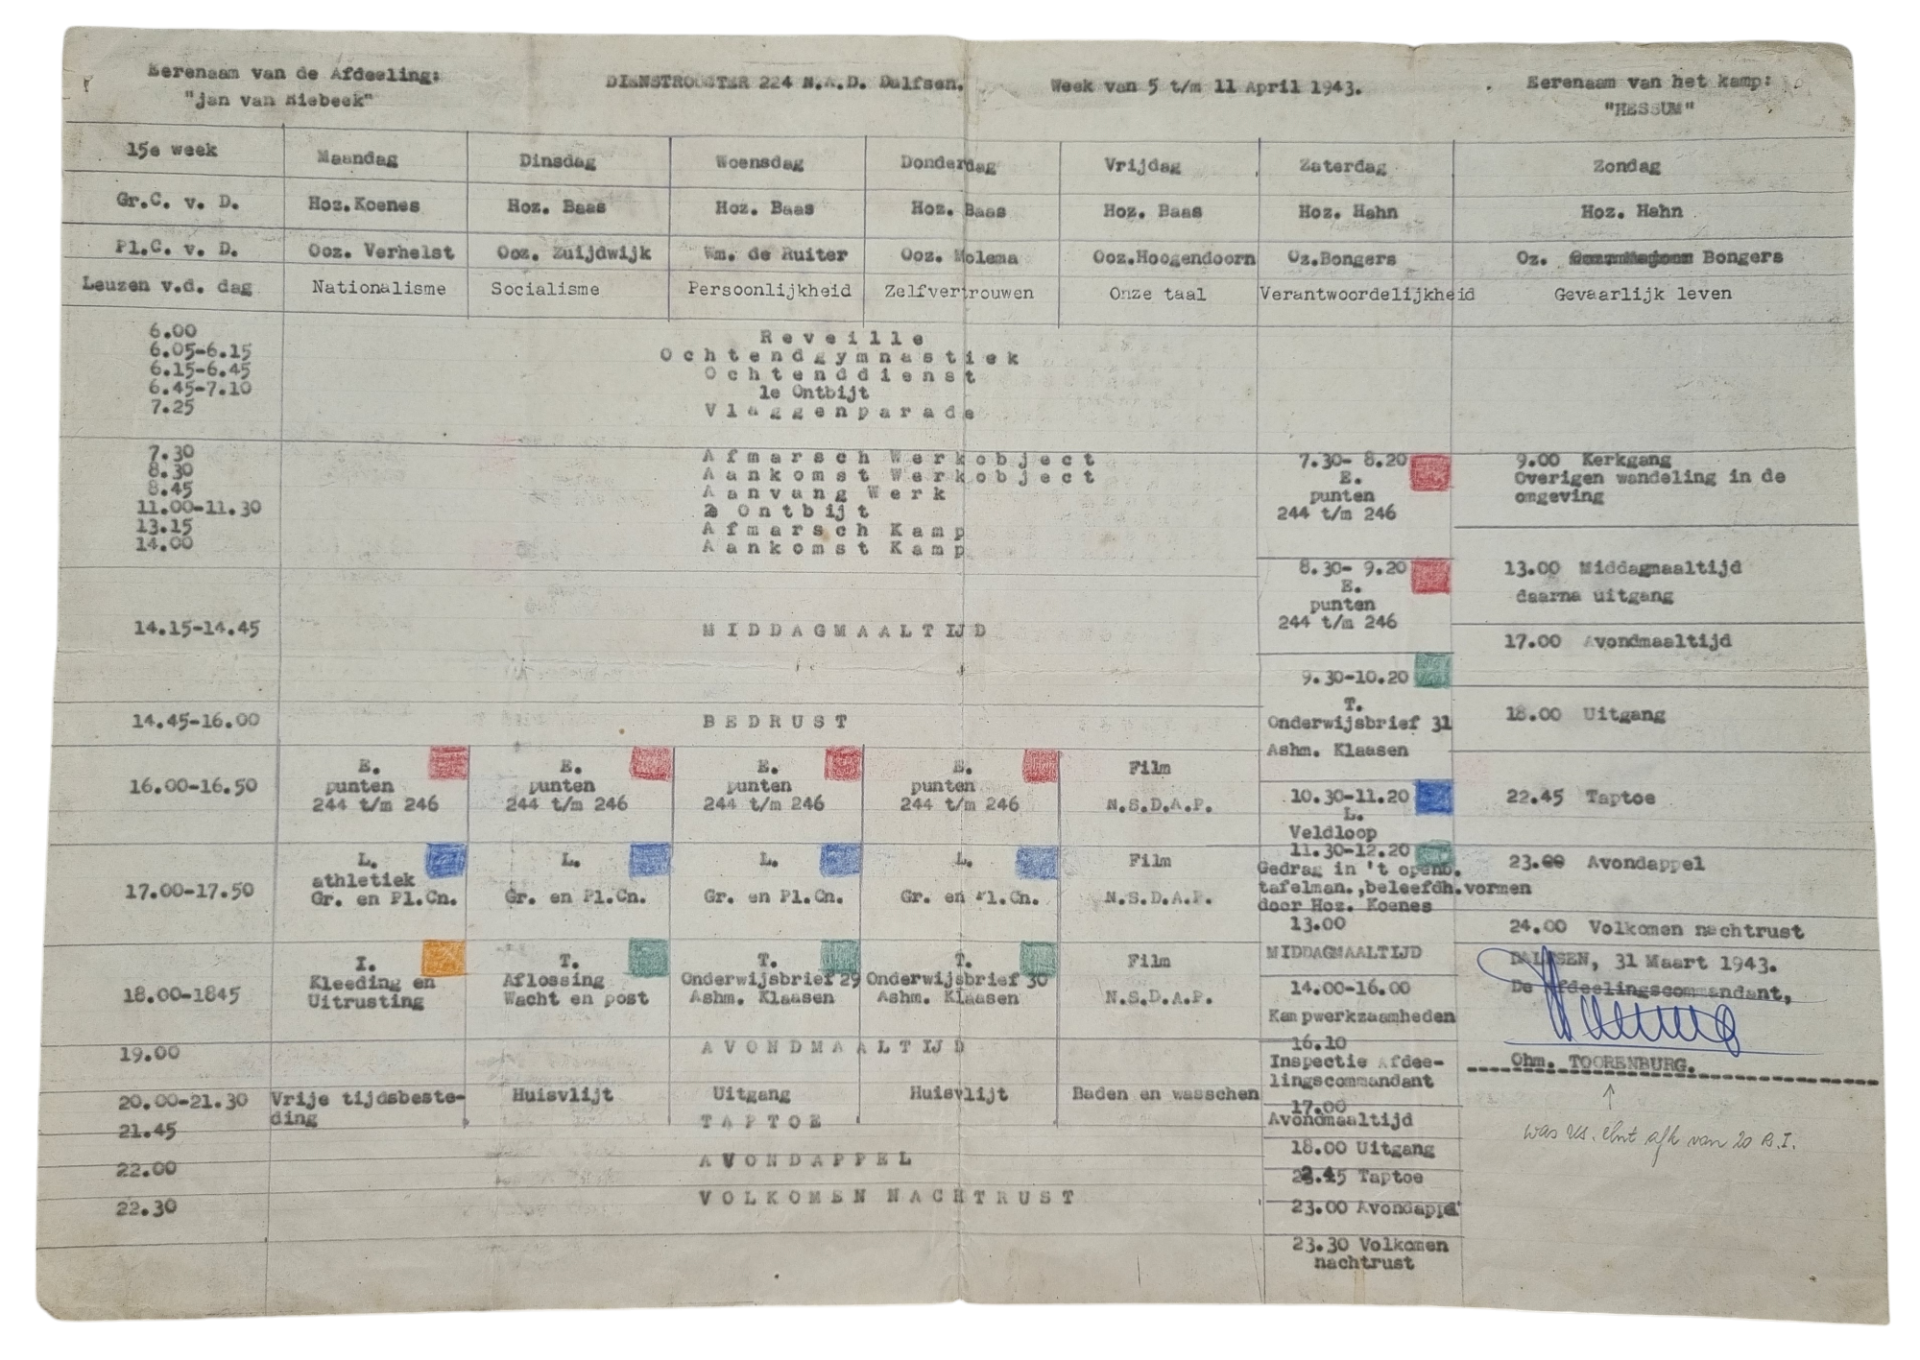 Eerenaam van de Afdeeling:
"jan van Riebeek"
DIENSTROOSTER 224 N.A.D. Dalfsen. Week van 5 t/m 11 April 1943.
Eerenaam van het kamp:
"HESSUM"
15e week Maandag Dinsdag Woensdag Donderdag Vrijdag Zaterdag Zondag
Gr.C. v. D. Hoz.Koenes Hoz. Baas Hoz. Baas Hoz. Baas Hoz. Baas Hoz. Hahn Hoz. Hahn
Pl.C. v. D. Ooz. Verhelst Ooz. Zuijdwijk Wm. de Ruiter Ooz. Molema Ooz.Hoogendoorn Oz.Bongers Oz. Bongers
Leuzen v.d. dag Nationalisme Socialisme Persoonlijkheid Zelfvertrouwen Onze taal Verantwoordelijkheid Gevaarlijk leven
6.00 Reveille
6.05-6.15 Ochtendgymnastiek
6.15-6.45 Ochtenddienst
6.45-7.10 1e Ontbijt
7.25 Vlaggenparade
7.30 Afmarsch Werkobject
8.30 Aankomst Werkobject
8.45 Aanvang Werk
11.00-11.30 2 Ontbijt
13.15 Afmarsch Kamp
14.00 Aankomst Kamp
14.15-14.45 MIDDAGMAALTIJD
14.45-16.00 BEDRUST
16.00-16.50
E.
punten
244 t/m 246
E.
punten
244 t/m 246
E.
punten
244 t/m 246
E.
punten
244 t/m 246
Film
N.S.D.A.P.
17.00-17.50
L.
athletiek
Gr. en Pl.Cn.
L.
Gr. en Pl.Cn.
L.
Gr. en Pl.Cn.
L.
Gr. en Pl.Cn.
Film
N.S.D.A.P.
18.00-1845
I.
Kleeding en
Uitrusting
T.
Aflossing
Wacht en post
T.
Onderwijsbrief 29
Ashm. Klaasen
T.
Onderwijsbrief 30
Ashm. Klaasen
Film
N.S.D.A.P.
19.00 AVONDMAALTIJD
20.00-21.30
Vrije tijdsbeste-
ding
Huisvlijt
Uitgang
Huisvlijt
Baden en wasschen
21.45 TAPTOE
22.00 AVONDAPPEL
22.30 VOLKOMEN NACHTRUST
7.30- 8.20
E.
punten
244 t/m 246
8.30- 9.20
E.
punten
244 t/m 246
9.30-10.20
T.
Onderwijsbrief 31
Ashm. Klaasen
10.30-11.20
L.
Veldloop
11.30-12.20
Gedrag in 't openb.
tafelman.,beleefdh.vormen
door Hoz. Koenes
13.00
MIDDAGMAALTIJD
14.00-16.00
Kampwerkzaamheden
16.10
Inspectie Afdee-
lingscommandant
17.00
Avondmaaltijd
18.00 Uitgang
22.45 Taptoe
23.00 Avondappel
23.30 Volkomen
nachtrust
9.00 Kerkgang
Overigen wandeling in de
omgeving
13.00 Middagmaaltijd
daarna uitgang
17.00 Avondmaaltijd
18.00 Uitgang
22.45 Taptoe
23.00 Avondappel
24.00 Volkomen nachtrust
DALFSEN, 31 Maart 1943.
De Afdeelingscommandant,
Ohm. TOORENBURG.
was res. van 20 R.I.